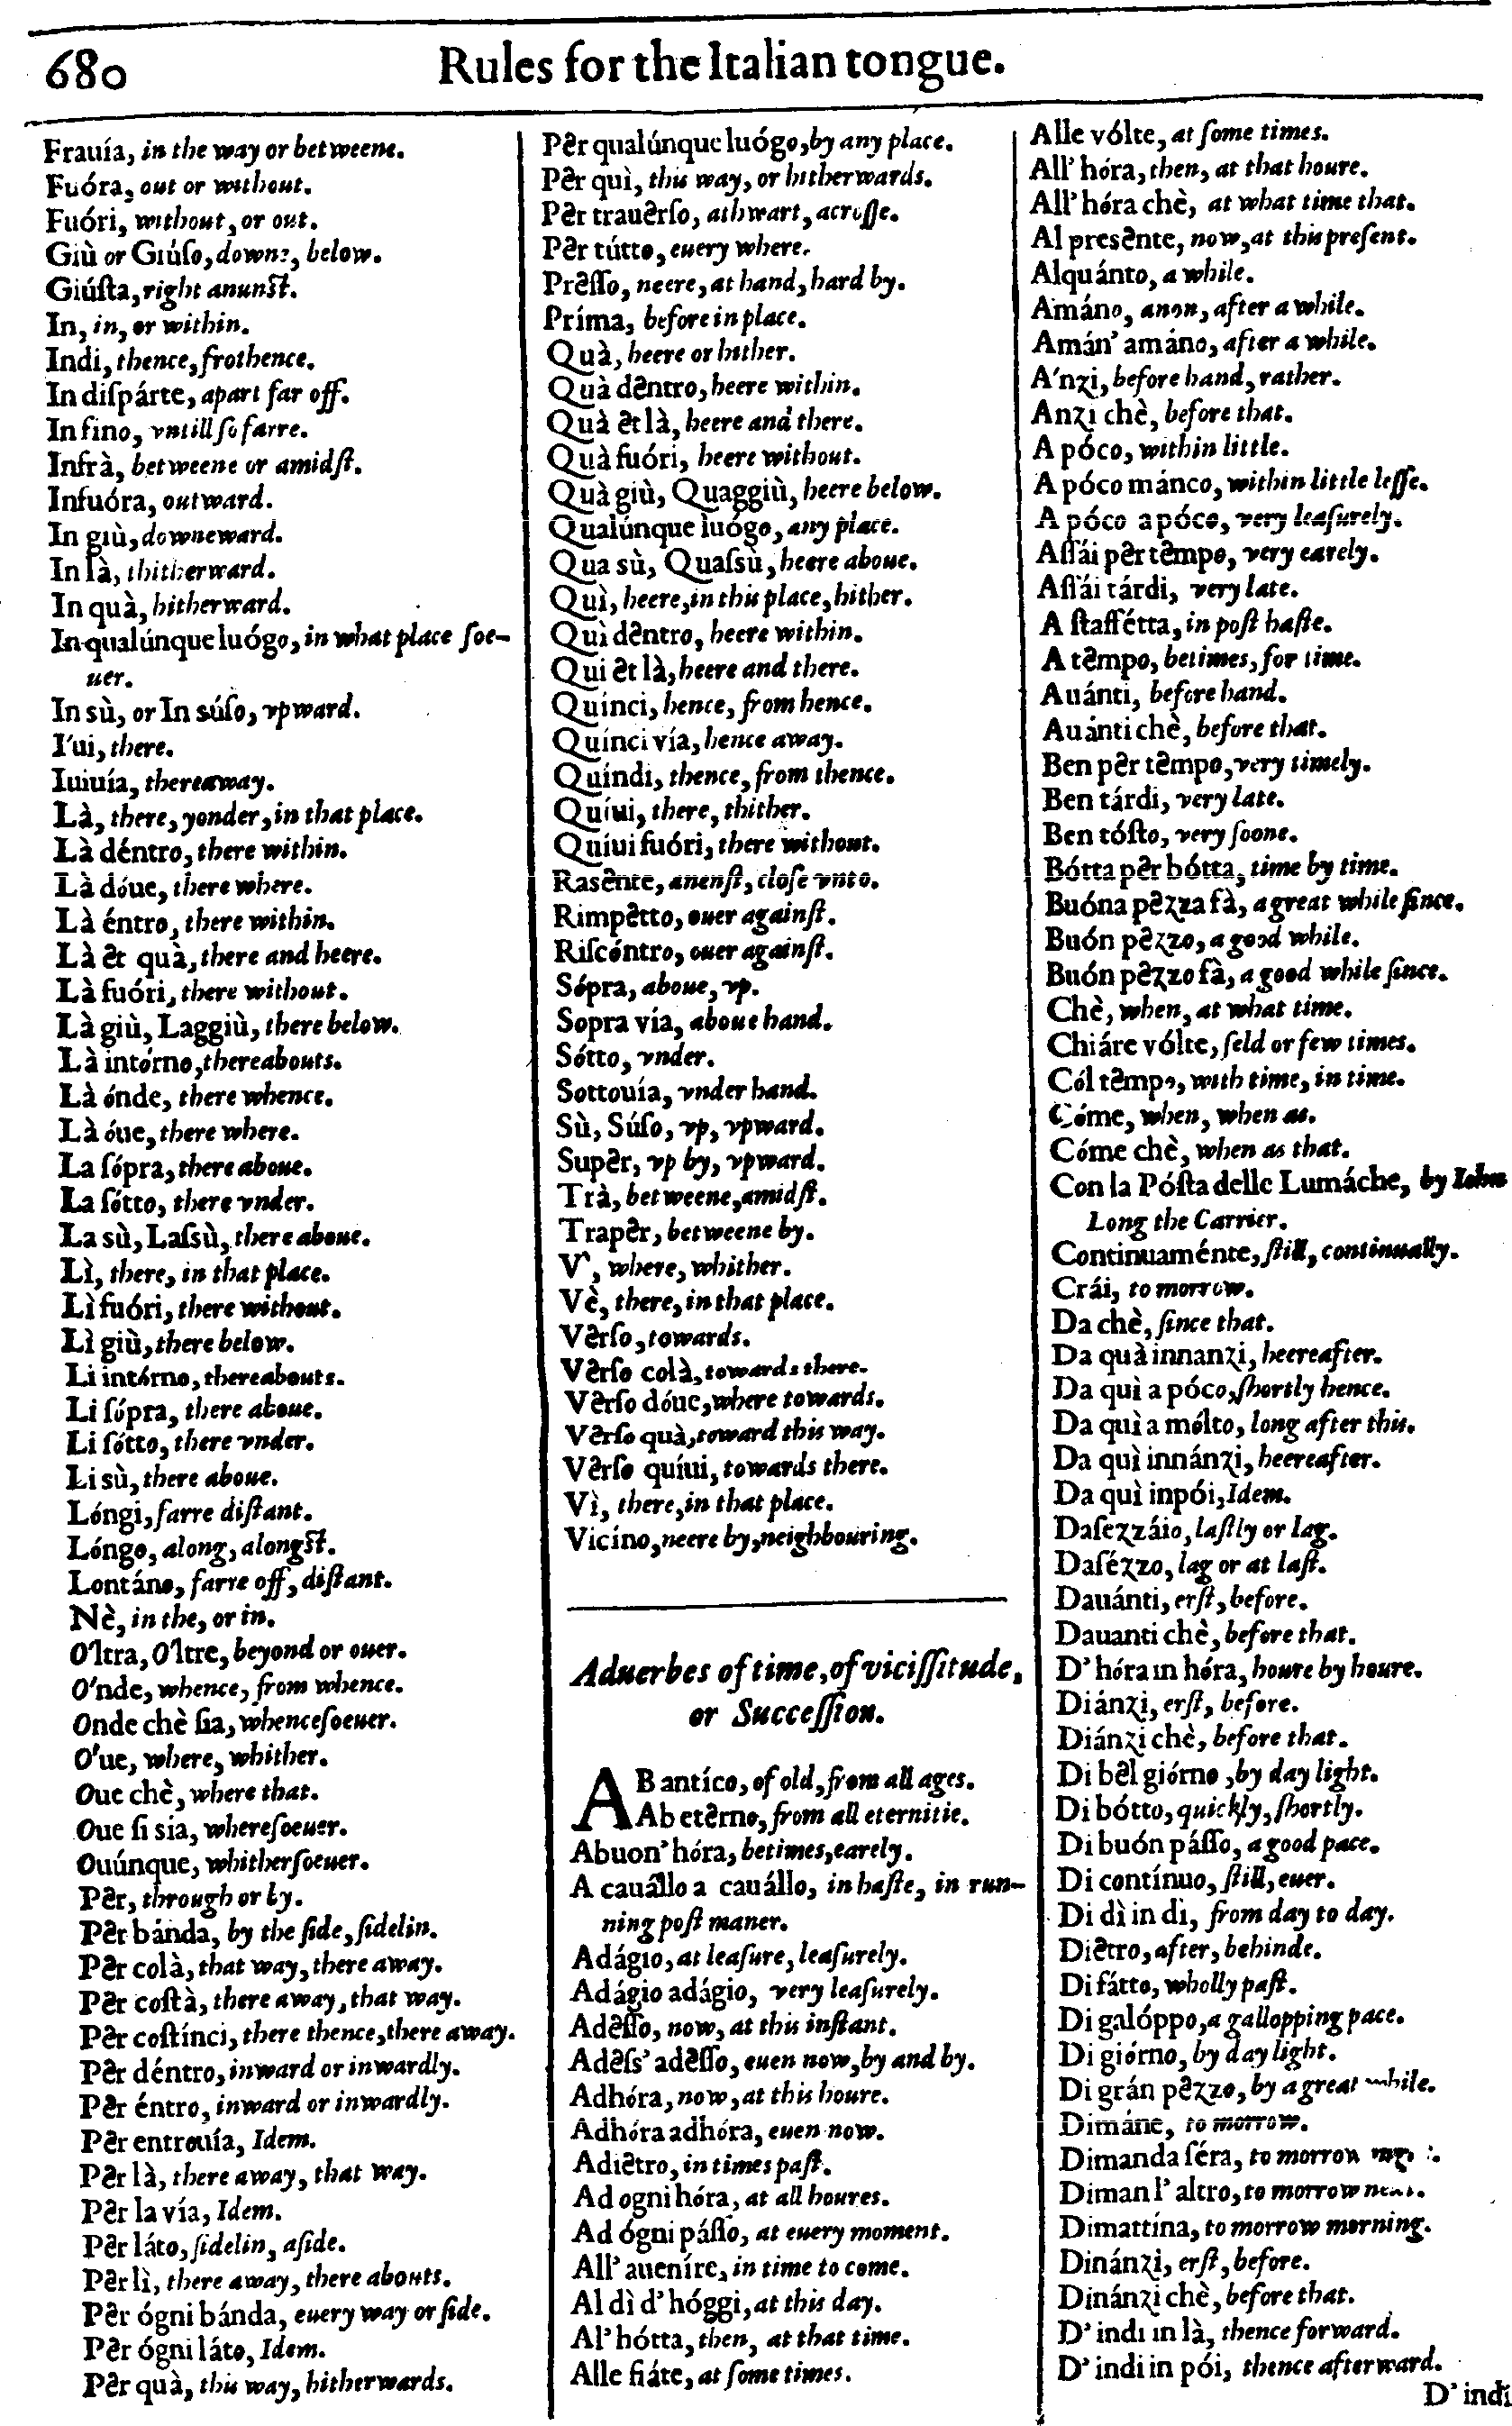 680
Rules for the Italian tongue.
Frauía, in the way or betweene.
Fuóra, out or without.
Fuóri, without, or out.
Giù or Giúſo, downe, below.
Giúſta, right anunſt.
In, in, or within.
Indi, thence, frothence.
In diſpárte, apart far off.
In fino, vntill ſo farre.
Infrà, betweene or amidſt.
Infuóra, outward.
In giù, downeward.
In là, thitherward.
In quà, hitherward.
In qualúnque luógo, in what place ſoe-
uer.
In sù, or In súſo, vpward.
I'ui, there.
Iuiuía, thereaway.
Là, there, yonder, in that place.
Là déntro, there within.
Là dóue, there where.
Là éntro, there within.
Là êt quà, there and heere.
Là fuóri, there without.
Là giù, Laggiù, there below.
Là intórno, thereabouts.
Là ónde, there whence.
Là óue, there where.
La ſópra, there aboue.
La ſótto, there vnder.
La sù, Laſsù, there aboue.
Lì, there, in that place.
Lì fuóri, there without.
Lì giù, there below.
Li intórno, thereabouts.
Li ſópra, there aboue.
Li ſótto, there vnder.
Li sù, there aboue.
Lóngi, farre diſtant.
Lóngo, along, alongſt.
Lontáno, farre off, diſtant.
Nè, in the, or in.
O'ltra, O'ltre, beyond or ouer.
O'nde, whence, from whence.
Onde chè ſia, whenceſoeuer.
O'ue, where, whither.
Oue chè, where that.
Oue ſi sia, whereſoeuer.
Ouúnque, whitherſoeuer.
Pêr, through or by.
Pêr bánda, by the ſide, ſidelin.
Pêr colà, that way, there away.
Pêr coſtà, there away, that way.
Pêr coſtínci, there thence, there away.
Pêr déntro, inward or inwardly.
Pêr éntro, inward or inwardly.
Pêr entrouía, Idem.
Pêr là, there away, that way.
Pêr la vía, Idem.
Pêr láto, ſidelin, aſide.
Pêr lì, there away, there abouts.
Pêr ógni bánda, euery way or ſide.
Pêr ógni láto, Idem.
Pêr quà, this way, hitherwards.
Pêr qualúnque luógo, by any place.
Pêr quì, this way, or hitherwards.
Pêr trauêrſo, athwart, acroſſe.
Pêr tútto, euery where.
Prêſſo, neere, at hand, hard by.
Príma, before in place.
Quà, heere or hither.
Quà dêntro, heere within.
Quà êt là, heere and there.
Quà fuóri, heere without.
Quà giù, Quaggiù, heere below.
Qualúnque luógo, any place.
Qua sù, Quaſsù, heere aboue.
Quì, heere, in this place, hither.
Quì dêntro, heere within.
Qui êt là, heere and there.
Quínci, hence, from hence.
Quínci vía, hence away.
Quíndi, thence, from thence.
Quíui, there, thither.
Quíui fuóri, there without.
Rasênte, anenſt, cloſe vnto.
Rimpêtto, ouer againſt.
Riſcóntro, ouer againſt.
Sópra, aboue, vp.
Sopra vía, aboue hand.
Sótto, vnder.
Sottouía, vnder hand.
Sù, Súſo, vp, vpward.
Supêr, vp by, vpward.
Trà, betweene, amidſt.
Trapêr, betweene by.
V', where, whither.
Vè, there, in that place.
Vêrſo, towards.
Vêrſo colà, towards there.
Vêrſo dóue, where towards.
Vêrſo quà, toward this way.
Vêrſo quíui, towards there.
Vì, there, in that place.
Vicíno, neere by, neighbouring.
Aduerbes of time, of viciſſitude,
or Succeſſion.
AB antíco, of old, from all ages.
Ab etêrno, from all eternitie.
Abuon' hóra, betimes, earely.
A cauállo a cauállo, in haſte, in run-
ning poſt maner.
Adágio, at leaſure, leaſurely.
Adágio adágio, very leaſurely.
Adêſſo, now, at this inſtant.
Adêſs' adêſſo, euen now, by and by.
Adhóra, now, at this houre.
Adhóra adhóra, euen now.
Adiêtro, in times paſt.
Ad ogni hóra, at all houres.
Ad ógni páſſo, at euery moment.
All' aueníre, in time to come.
Al dì d' hóggi, at this day.
Al' hótta, then, at that time.
Alle fiáte, at ſome times.
Alle vólte, at ſome times.
All' hóra, then, at that houre.
All' hóra chè, at what time that.
Al presênte, now, at this preſent.
Alquánto, a while.
Amáno, anon, after a while.
Amán' amáno, after a while.
A'nzi, before hand, rather.
Anzi chè, before that.
A póco, within little.
A póco mánco, within little leſſe.
A póco a póco, very leaſurely.
Aſſái pêr têmpo, very earely.
Aſſái tárdi, very late.
A ſtaffétta, in poſt haſte.
A têmpo, betimes, for time.
Auánti, before hand.
Auánti chè, before that.
Ben pêr têmpo, very timely.
Ben tárdi, very late.
Ben tóſto, very ſoone.
Bótta pêr bótta, time by time.
Buóna pêzza fà, a great while ſince.
Buón pêzzo, a good while.
Buón pêzzo fà, a good while ſince.
Chè, when, at what time.
Chiáre vólte, ſeld or few times.
Cól têmpo, with time, in time.
Cóme, when, when as.
Cóme chè, when as that.
Con la Póſta delle Lumáche, by Iohn
Long the Carrier.
Continuaménte, ſtill, continually.
Crái, to morrow.
Da chè, ſince that.
Da quà innanzi, heereafter.
Da quì a póco, ſhortly hence.
Da quì a mólto, long after this.
Da quì innánzi, heereafter.
Da quì inpói, Idem.
Daſezzáio, laſtly or lag.
Daſézzo, lag or at laſt.
Dauánti, erſt, before.
Dauanti chè, before that.
D' hóra in hóra, houre by houre.
Diánzi, erſt, before.
Diánzi chè, before that.
Di bêl giórno, by day light.
Di bótto, quickly, ſhortly.
Di buón páſſo, a good pace.
Di contínuo, ſtill, euer.
Di dì in di, from day to day.
Diêtro, after, behinde.
Di fátto, wholly paſt.
Di galóppo, a gallopping pace.
Di giórno, by day light.
Di grán pêzzo, by a great while.
Dimáne, to morrow.
Dimanda ſéra, to morrow
Diman l' altro, to morrow next.
Dimattína, to morrow morning.
Dinánzi, erſt, before.
Dinánzi chè, before that.
D' indi in là, thence forward.
D' indi in pói, thence afterward.
D' indi